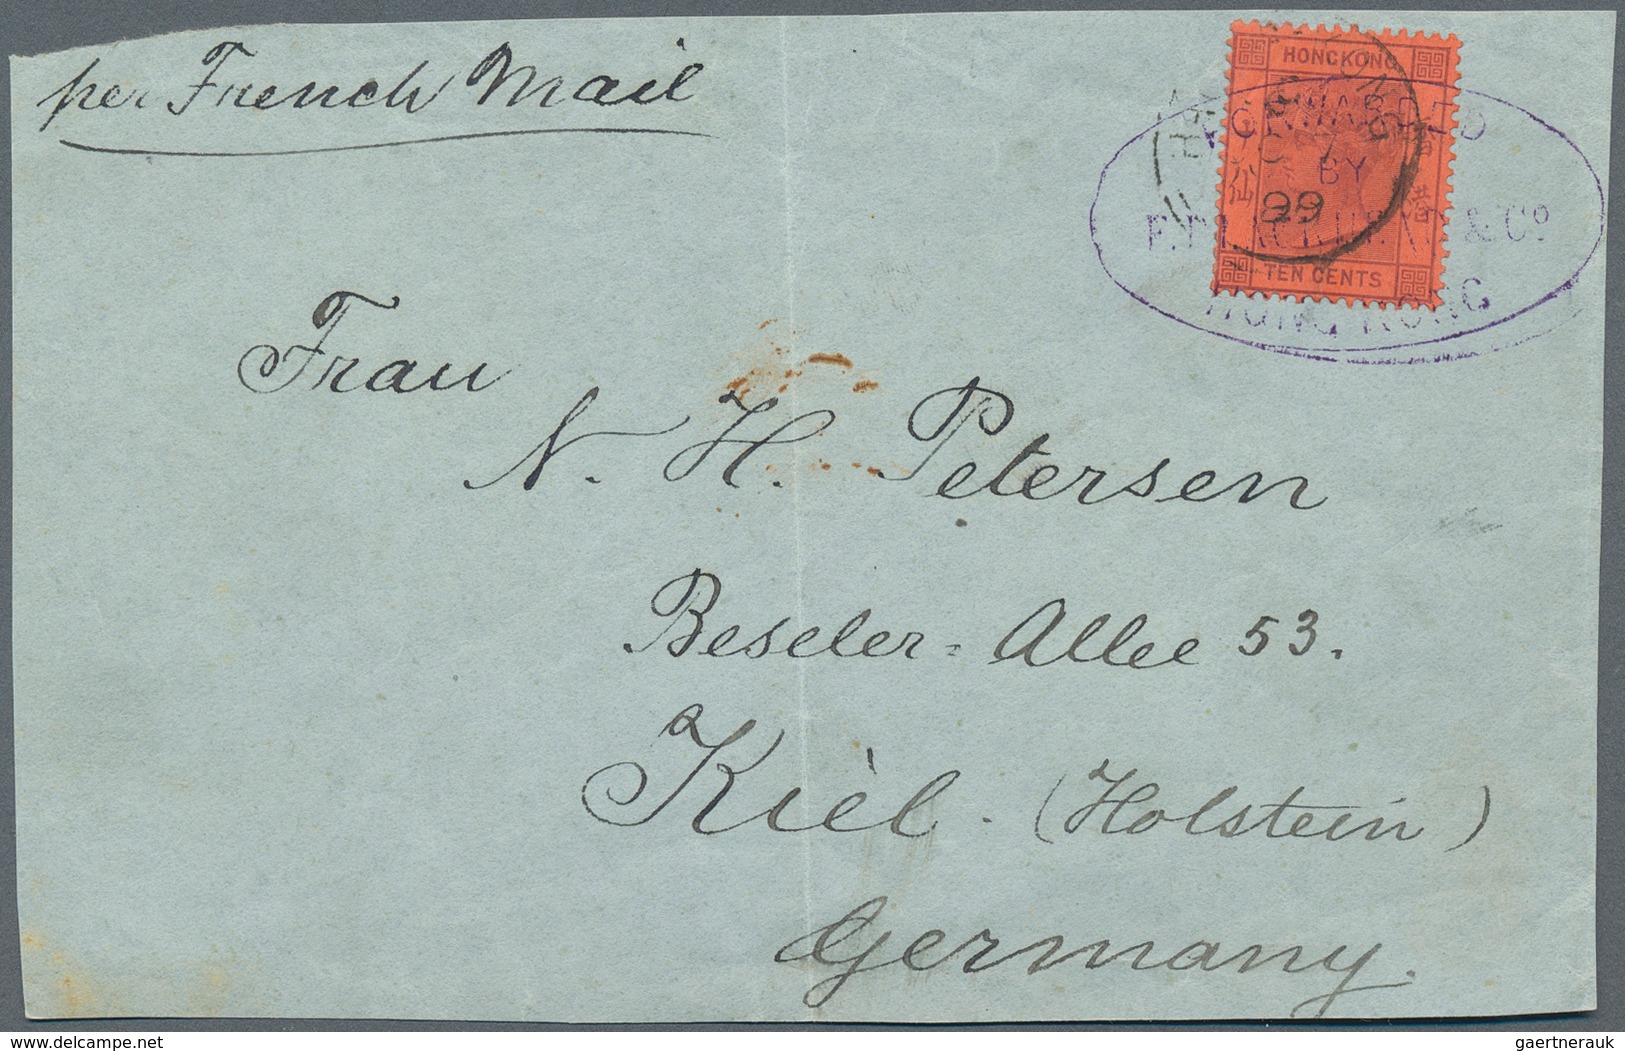 per French Mail
HONGKONG
香
港
仙
TEN CENTS
99
FORWARDED
BY
F. BLACKHEAD & Co
HONG KONG
Frau
N. H. Petersen
Beseler-Allee 53.
Kiel. (Holstein)
Germany.
delcampe.net
gaertnerauk